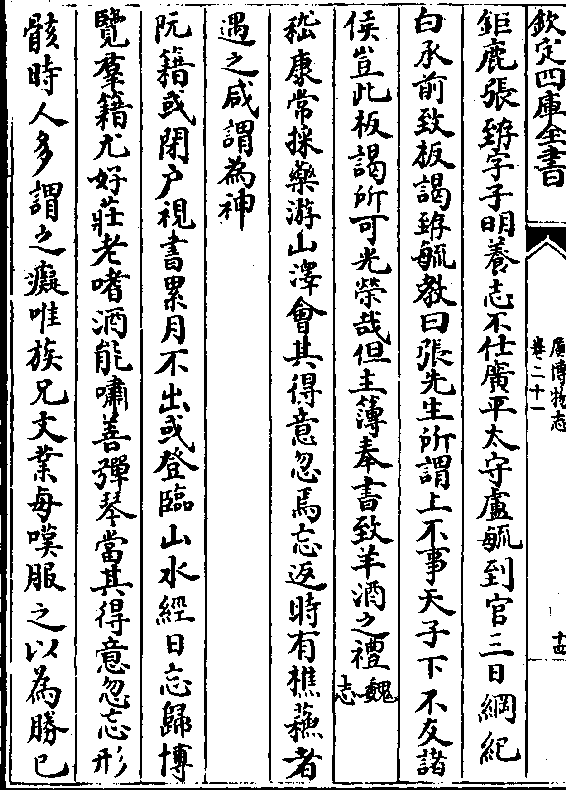 欽定四庫全書
廣博物志
卷二十一
十四
鉅鹿張臶字子明養志不仕廣平太守盧毓到官三日綱紀
白承前致板謁臶毓教曰張先生所謂上不事天子下不友諸
侯豈此板謁所可光榮哉但主簿奉書致羊酒之禮魏志
嵇康常採藥游山澤會其得意忽焉忘返時有樵蘓者
遇之咸謂為神
阮籍或閉户視書累月不出或登臨山水經日忘歸博
覽羣籍尤好莊老嗜酒能嘯善彈琴當其得意忽忘形
骸時人多謂之癡唯族兄文業每嘆服之以為勝已